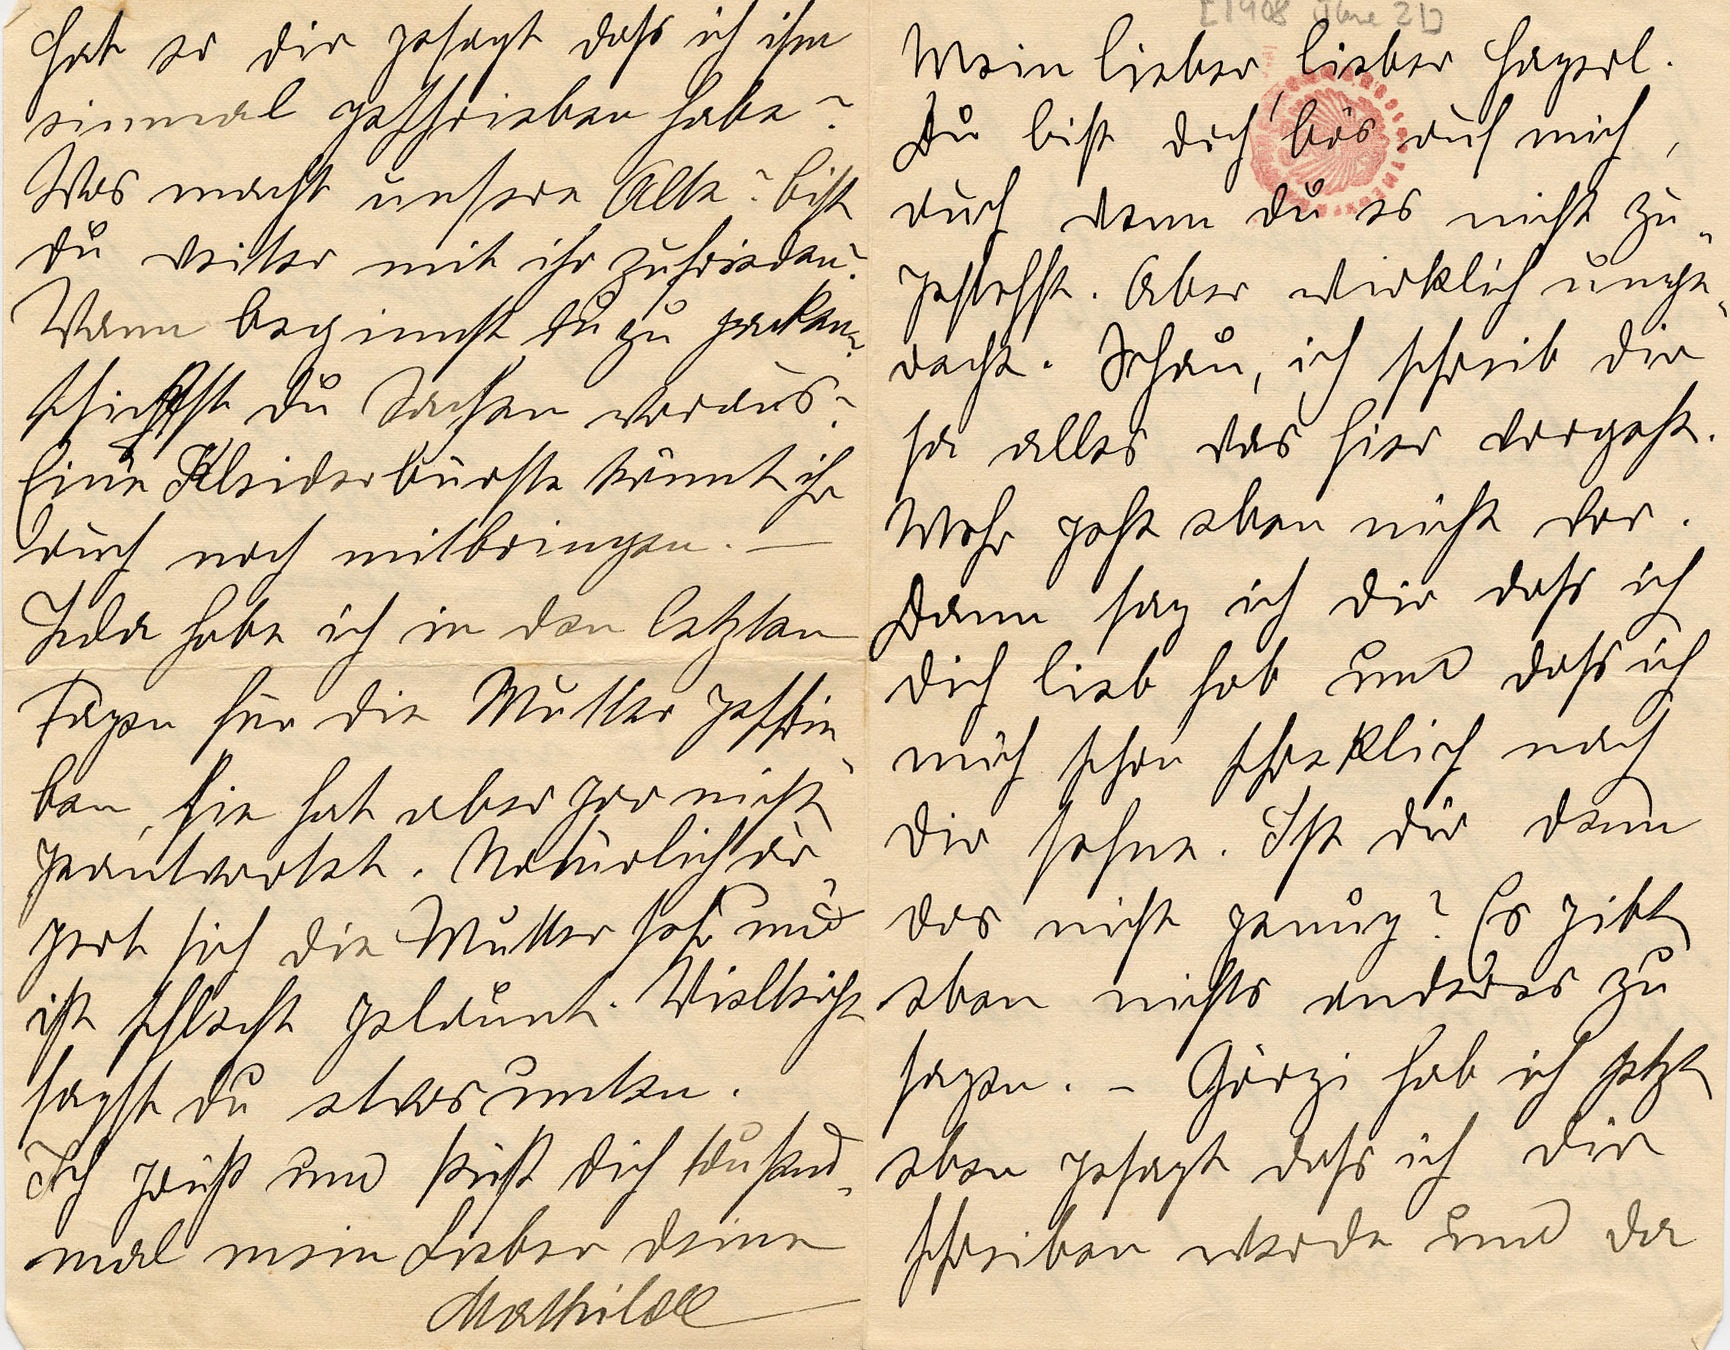 [1908 June 21]
Mein lieber lieber Hagerl.
Du bist doch bös auf mich,
auch wenn du es nicht zu-
gestehst. Aber wirklich unge-
recht. Schau, ich schreib dir
ja alles was hier vorgeht.
Mehr geht eben nicht vor.
Dann sag ich dir dass ich
dich lieb hab und dass ich
mich schon schrecklich nach
dir sehne. Ist dir denn
das nicht genug? Es gibt
eben nichts anderes zu
sagen. – Görgi hab ich jetzt
eben gesagt dass ich dir
schreiben werde und da
hat er dir gesagt dass ich ihm
einmal geschrieben habe?
Was macht unsere Alte? bist
du weiter mit ihr zufrieden?
Wann beginnst du zu packen?
schickst du Sachen voraus?
Eine Kleiderbürste könnt ihr
auch noch mitbringen. —
Ida habe ich in den letzten
Tagen für die Mutter geschrie-
ben, sie hat aber gar nicht
geantwortet. Natürlich är-
gert sich die Mutter sehr und
ist schlecht gelaunt. Vielleicht
sagst du etwas unten.
Ich grüß und küß dich tausend-
mal mein Lieber deine
Mathilde